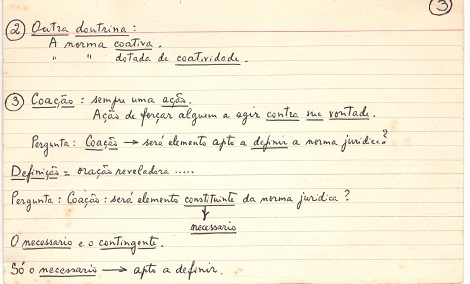 3
② Outra doutrina :
A norma coativa.
" " dotada de coatividade.
③ Coação : sempre uma ação.
Ação de forçar alguem a agir contra sua vontade.
Pergunta : Coação → será elemento apto a definir a norma juridica?
Definição = oração reveladora .....
Pergunta : Coação : será elemento constituinte da norma juridica ?
↓
necessario
O necessario e o contingente.
Só o necessario → apto a definir.